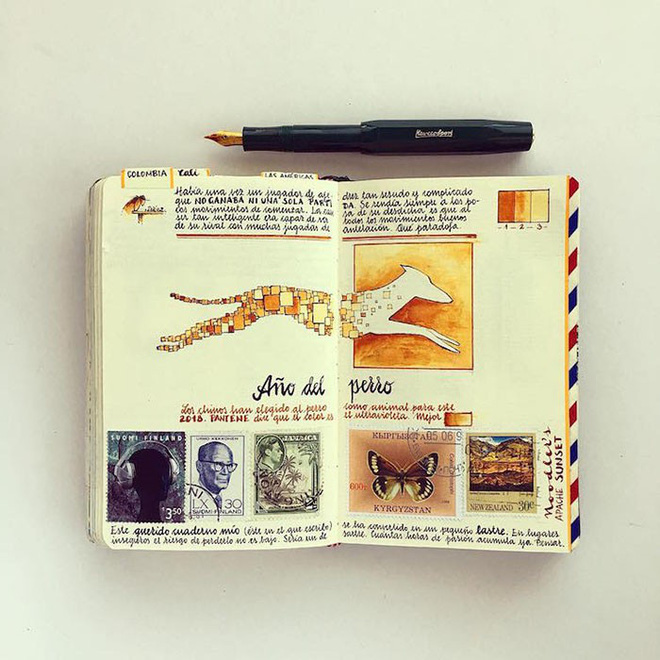 Kaweco Sport
COLOMBIA Cali LAS AMÉRICAS
Había una vez un jugador de aje- drez tan sesudo y complicado
que NO GANABA NI UNA SOLA PARTI DA. Se rendía siempre a los po-
cos movimientos de comenzar. La ja de su desdicha es que al
ser tan inteligente era capaz de todos los movimientos buenos
de su rival con muchas jugadas de antelación. Qué paradoja.
-1-2-3-
Año del perro
Los chinos han elegido al perro como animal para este
2018. PANTENE dice que el color es el ultravioleta. Mejor
SUOMI FINLAND
3,50
URHO KEKKONEN
30
SUOMI-FINLAND
JAMAICA
КЫРГЫЗСТАН
05 06 9
600т
KYRGYZSTAN
NEW ZEALAND 30c
Noodler's
APACHE SUNSET
Este querido cuaderno mío (éste en el que escribo) se ha convertido en un pequeño lastre. En lugares
inseguros el riesgo de perderlo no es bajo. Sería un de sastre. Cuántas horas de pasión acumula ya. Pensar.